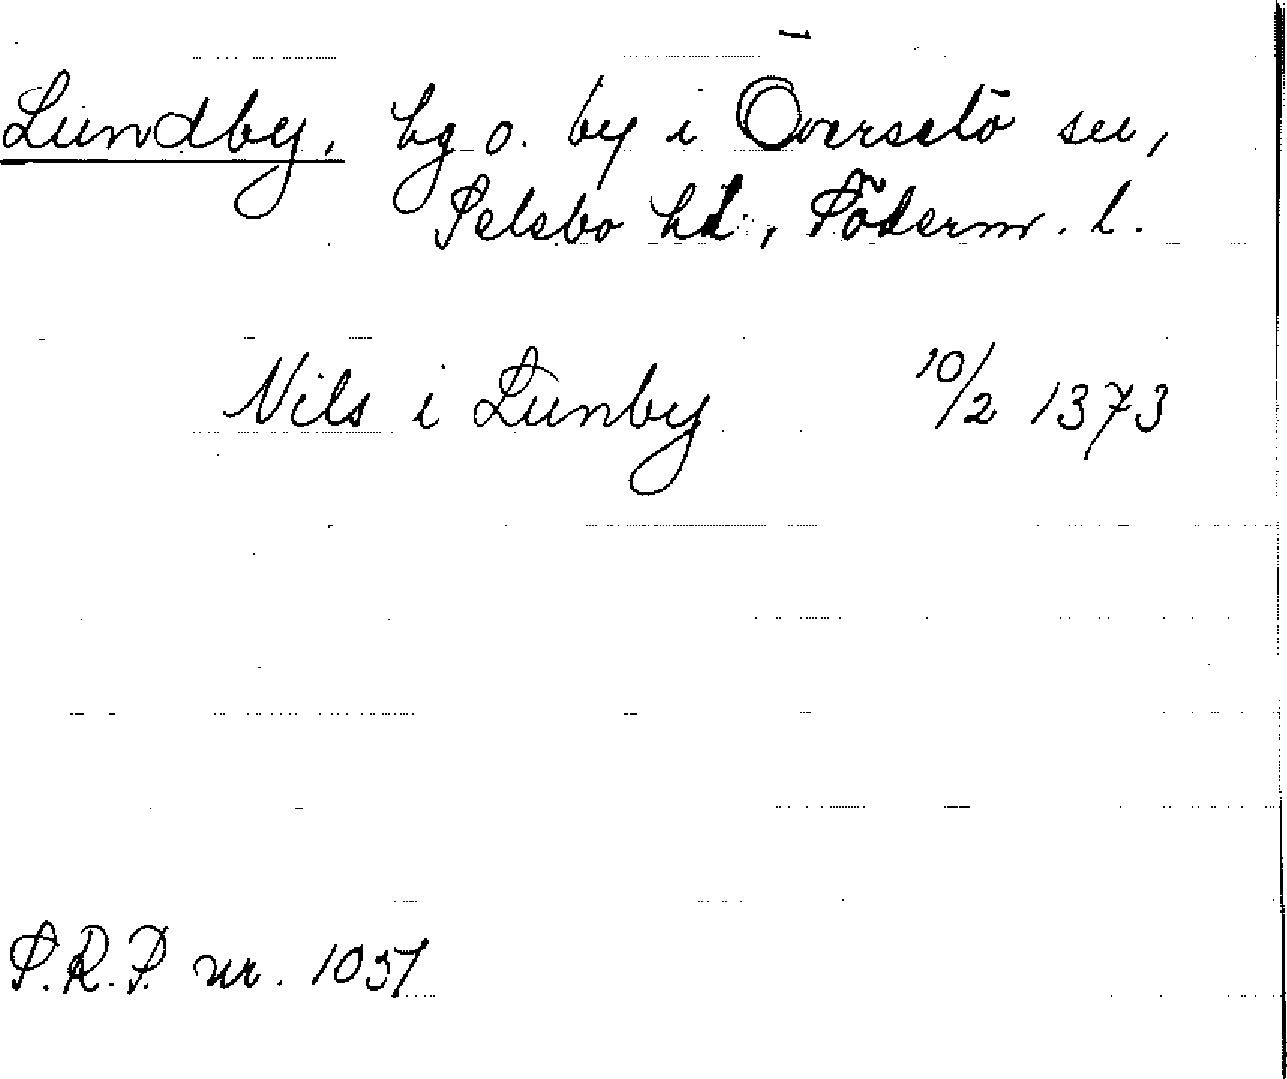 Lundby, hg o. by i Överselö sn,
Selebo hd, Söderm. l.
Nils i Lunby 10/2 1373
S.R.P. nr. 1037